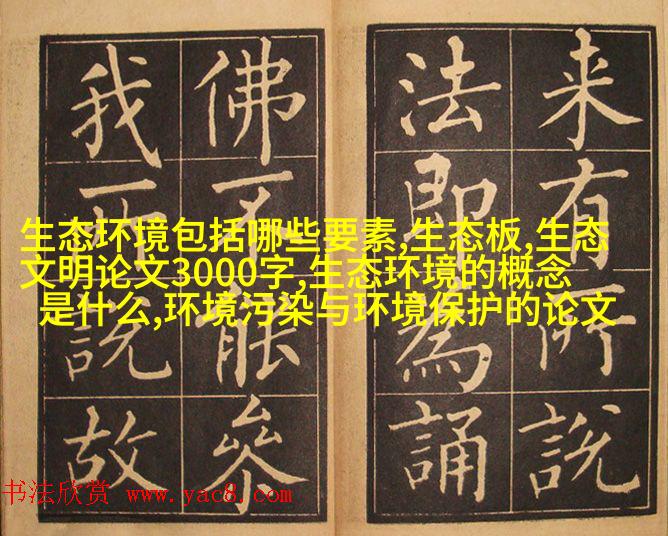 生态环境包括哪些要素,生态板,生态
文明论文3000字,生态环境的概念
是什么,环境污染与环境保护的论文
来有所說
法即為誦
佛不能叅
我說故
书法欣赏 www.yac8.com